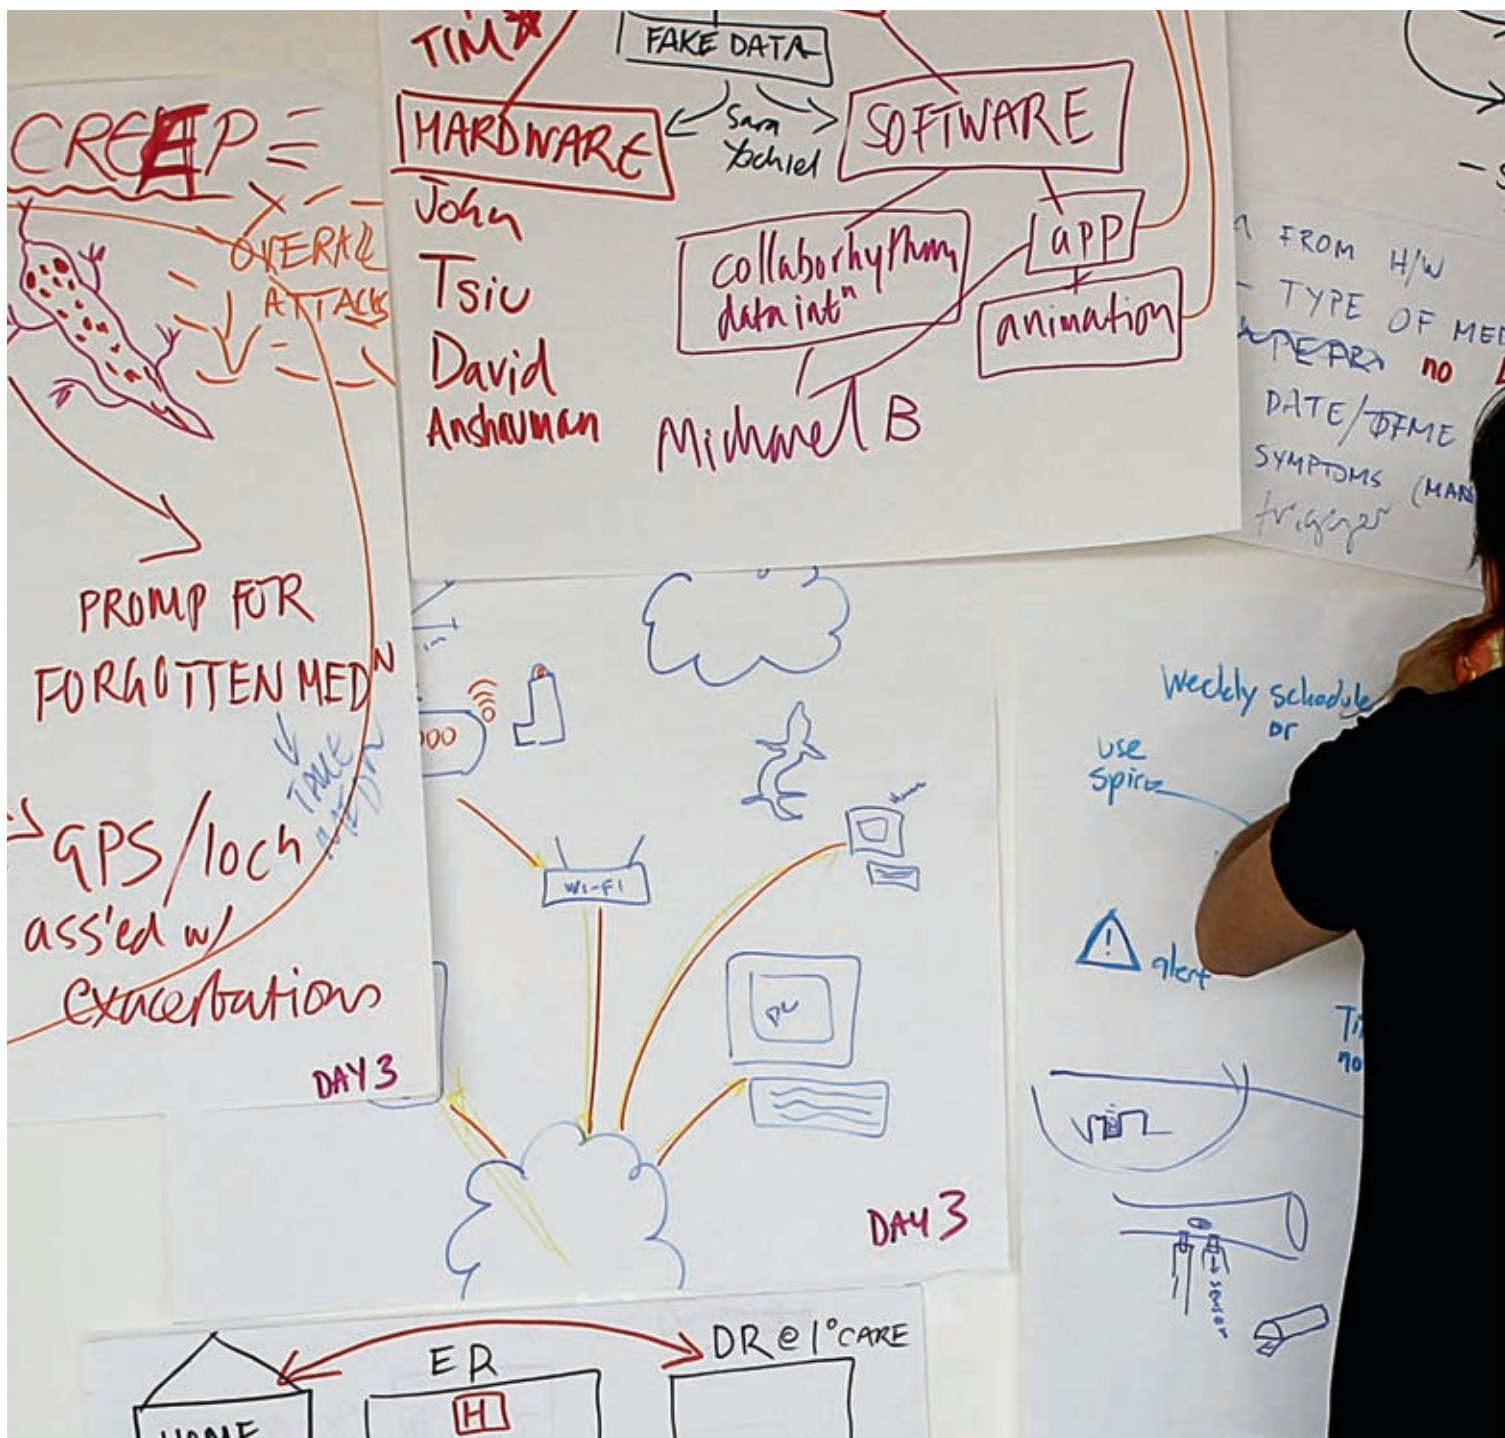 CREEP =
OVERALL
ATTACKS
PROMP FOR
FORGOTTEN MEDN
TAKE
MEDN
GPS/locn
ass'ed w/
exacerbations
DAY 3
TIM
FAKE DATA
HARDWARE
Sara
Yechiel
SOFTWARE
John
Tsiu
David
Anshuman
collaborhythm
data intn
app
animation
Michael B
FROM H/W
- TYPE OF MED
no
DATE/TIME
SYMPTOMS (MAN
trigger
WI-FI
PC
DAY 3
weekly schedule
or
use
spiro
alert
Ti
no
sensor
HOME
ER
H
DR @ 1° CARE